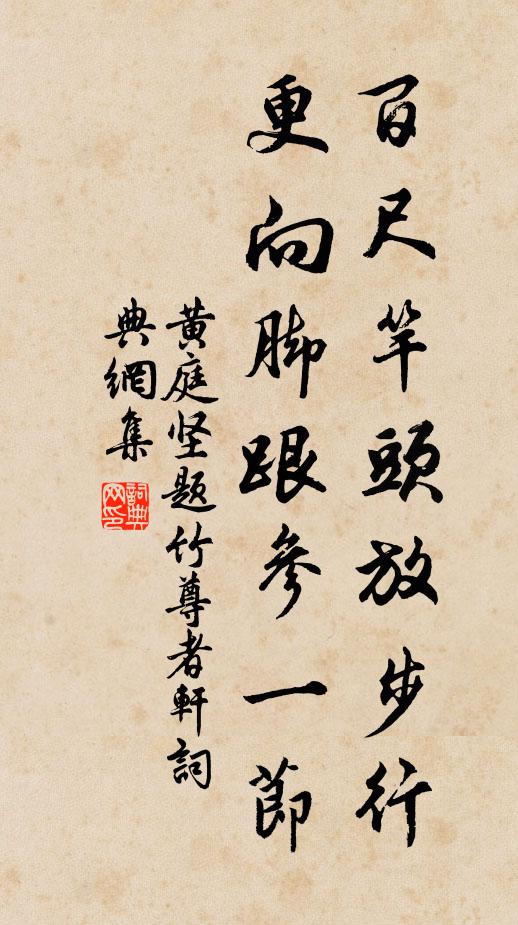 百尺竿頭放步行
更向脚跟參一節
黃庭坚题竹尊者軒詞
典網集
詞典網印